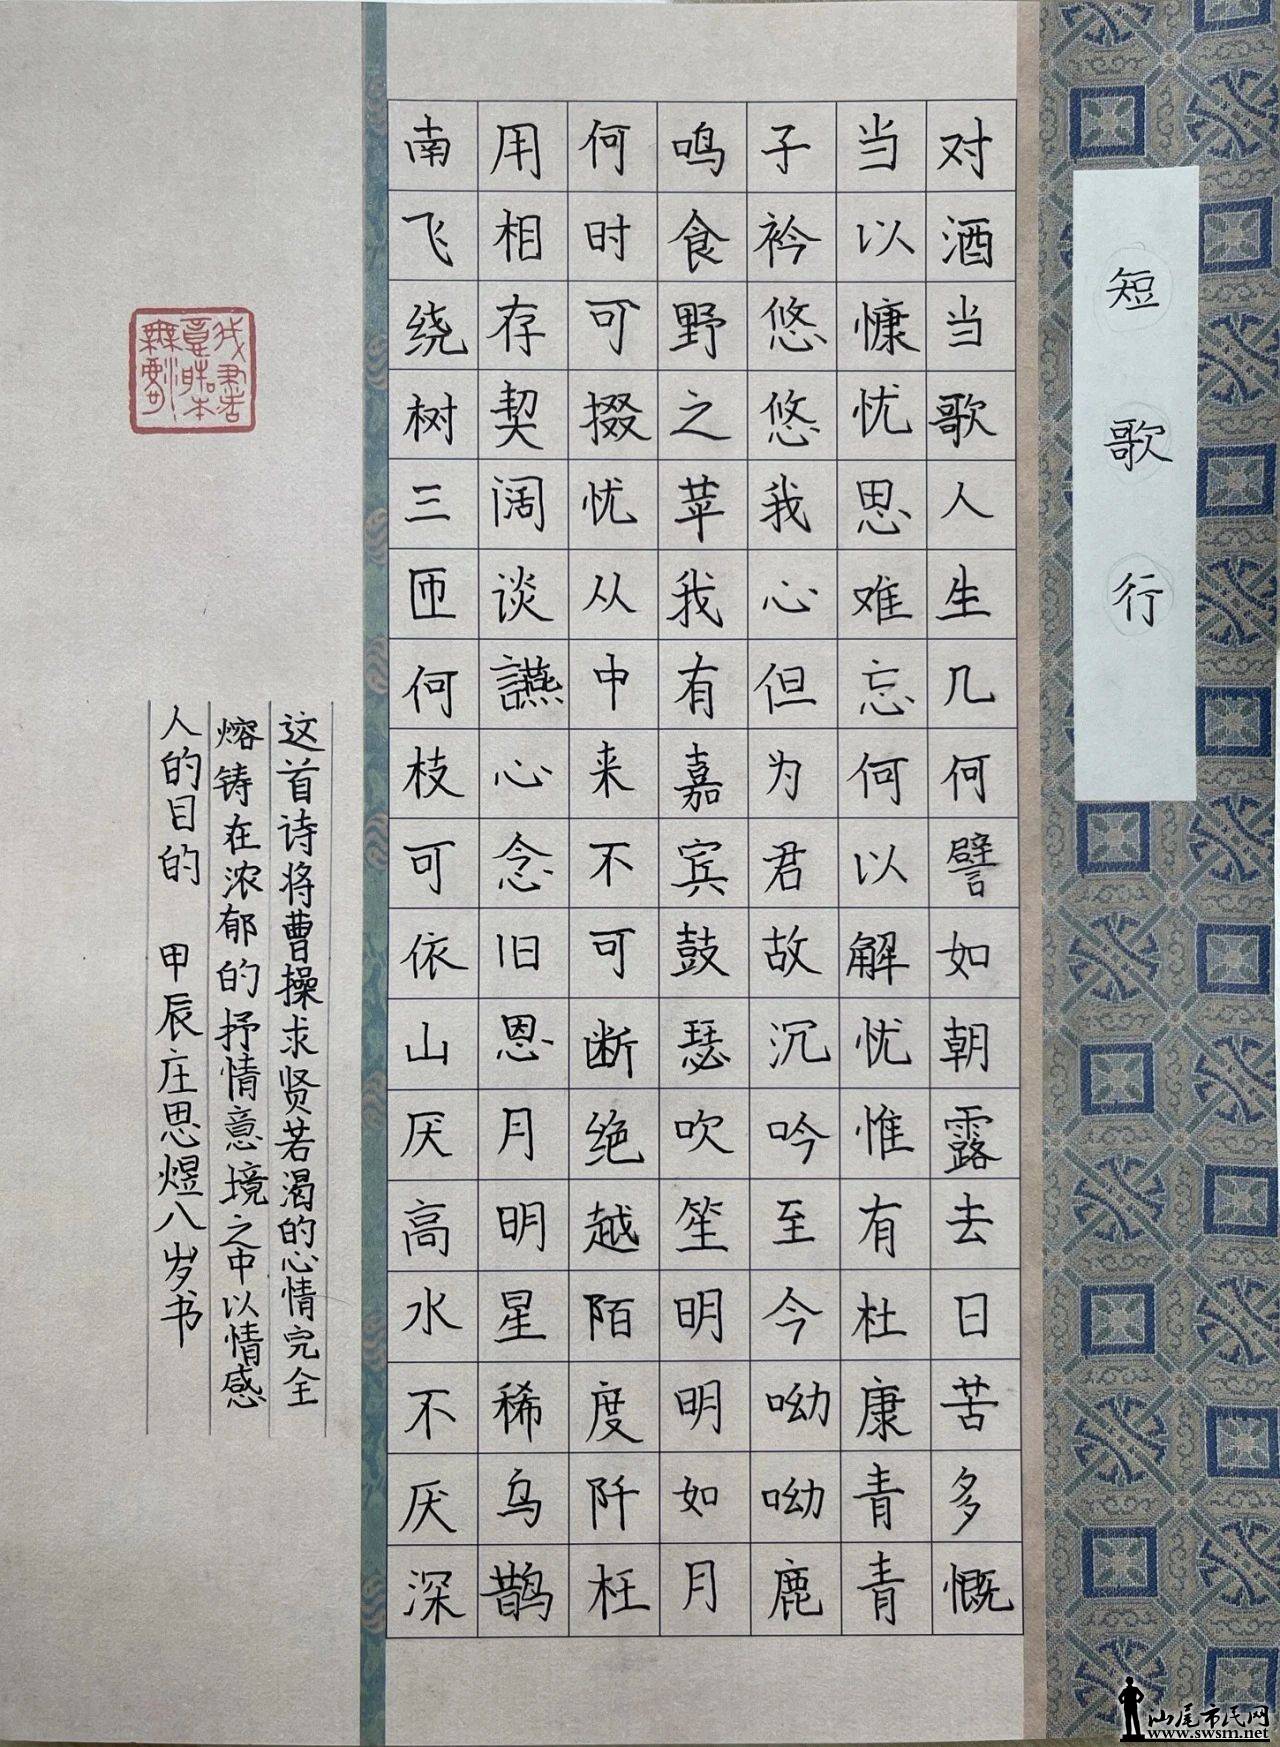 短歌行
对酒当歌人生几何譬如朝露去日苦多慨
当以慷忧思难忘何以解忧惟有杜康青青
子衿悠悠我心但为君故沉吟至今呦呦鹿
鸣食野之苹我有嘉宾鼓瑟吹笙明明如月
何时可掇忧从中来不可断绝越陌度阡枉
用相存契阔谈讌心念旧恩月明星稀乌鹊
南飞绕树三匝何枝可依山厌高水不厌深
这首诗将曹操求贤若渴的心情完全
熔铸在浓郁的抒情意境之中以情感
人的目的 甲辰庄思煜八岁书
汕尾市民网
www.swsm.net